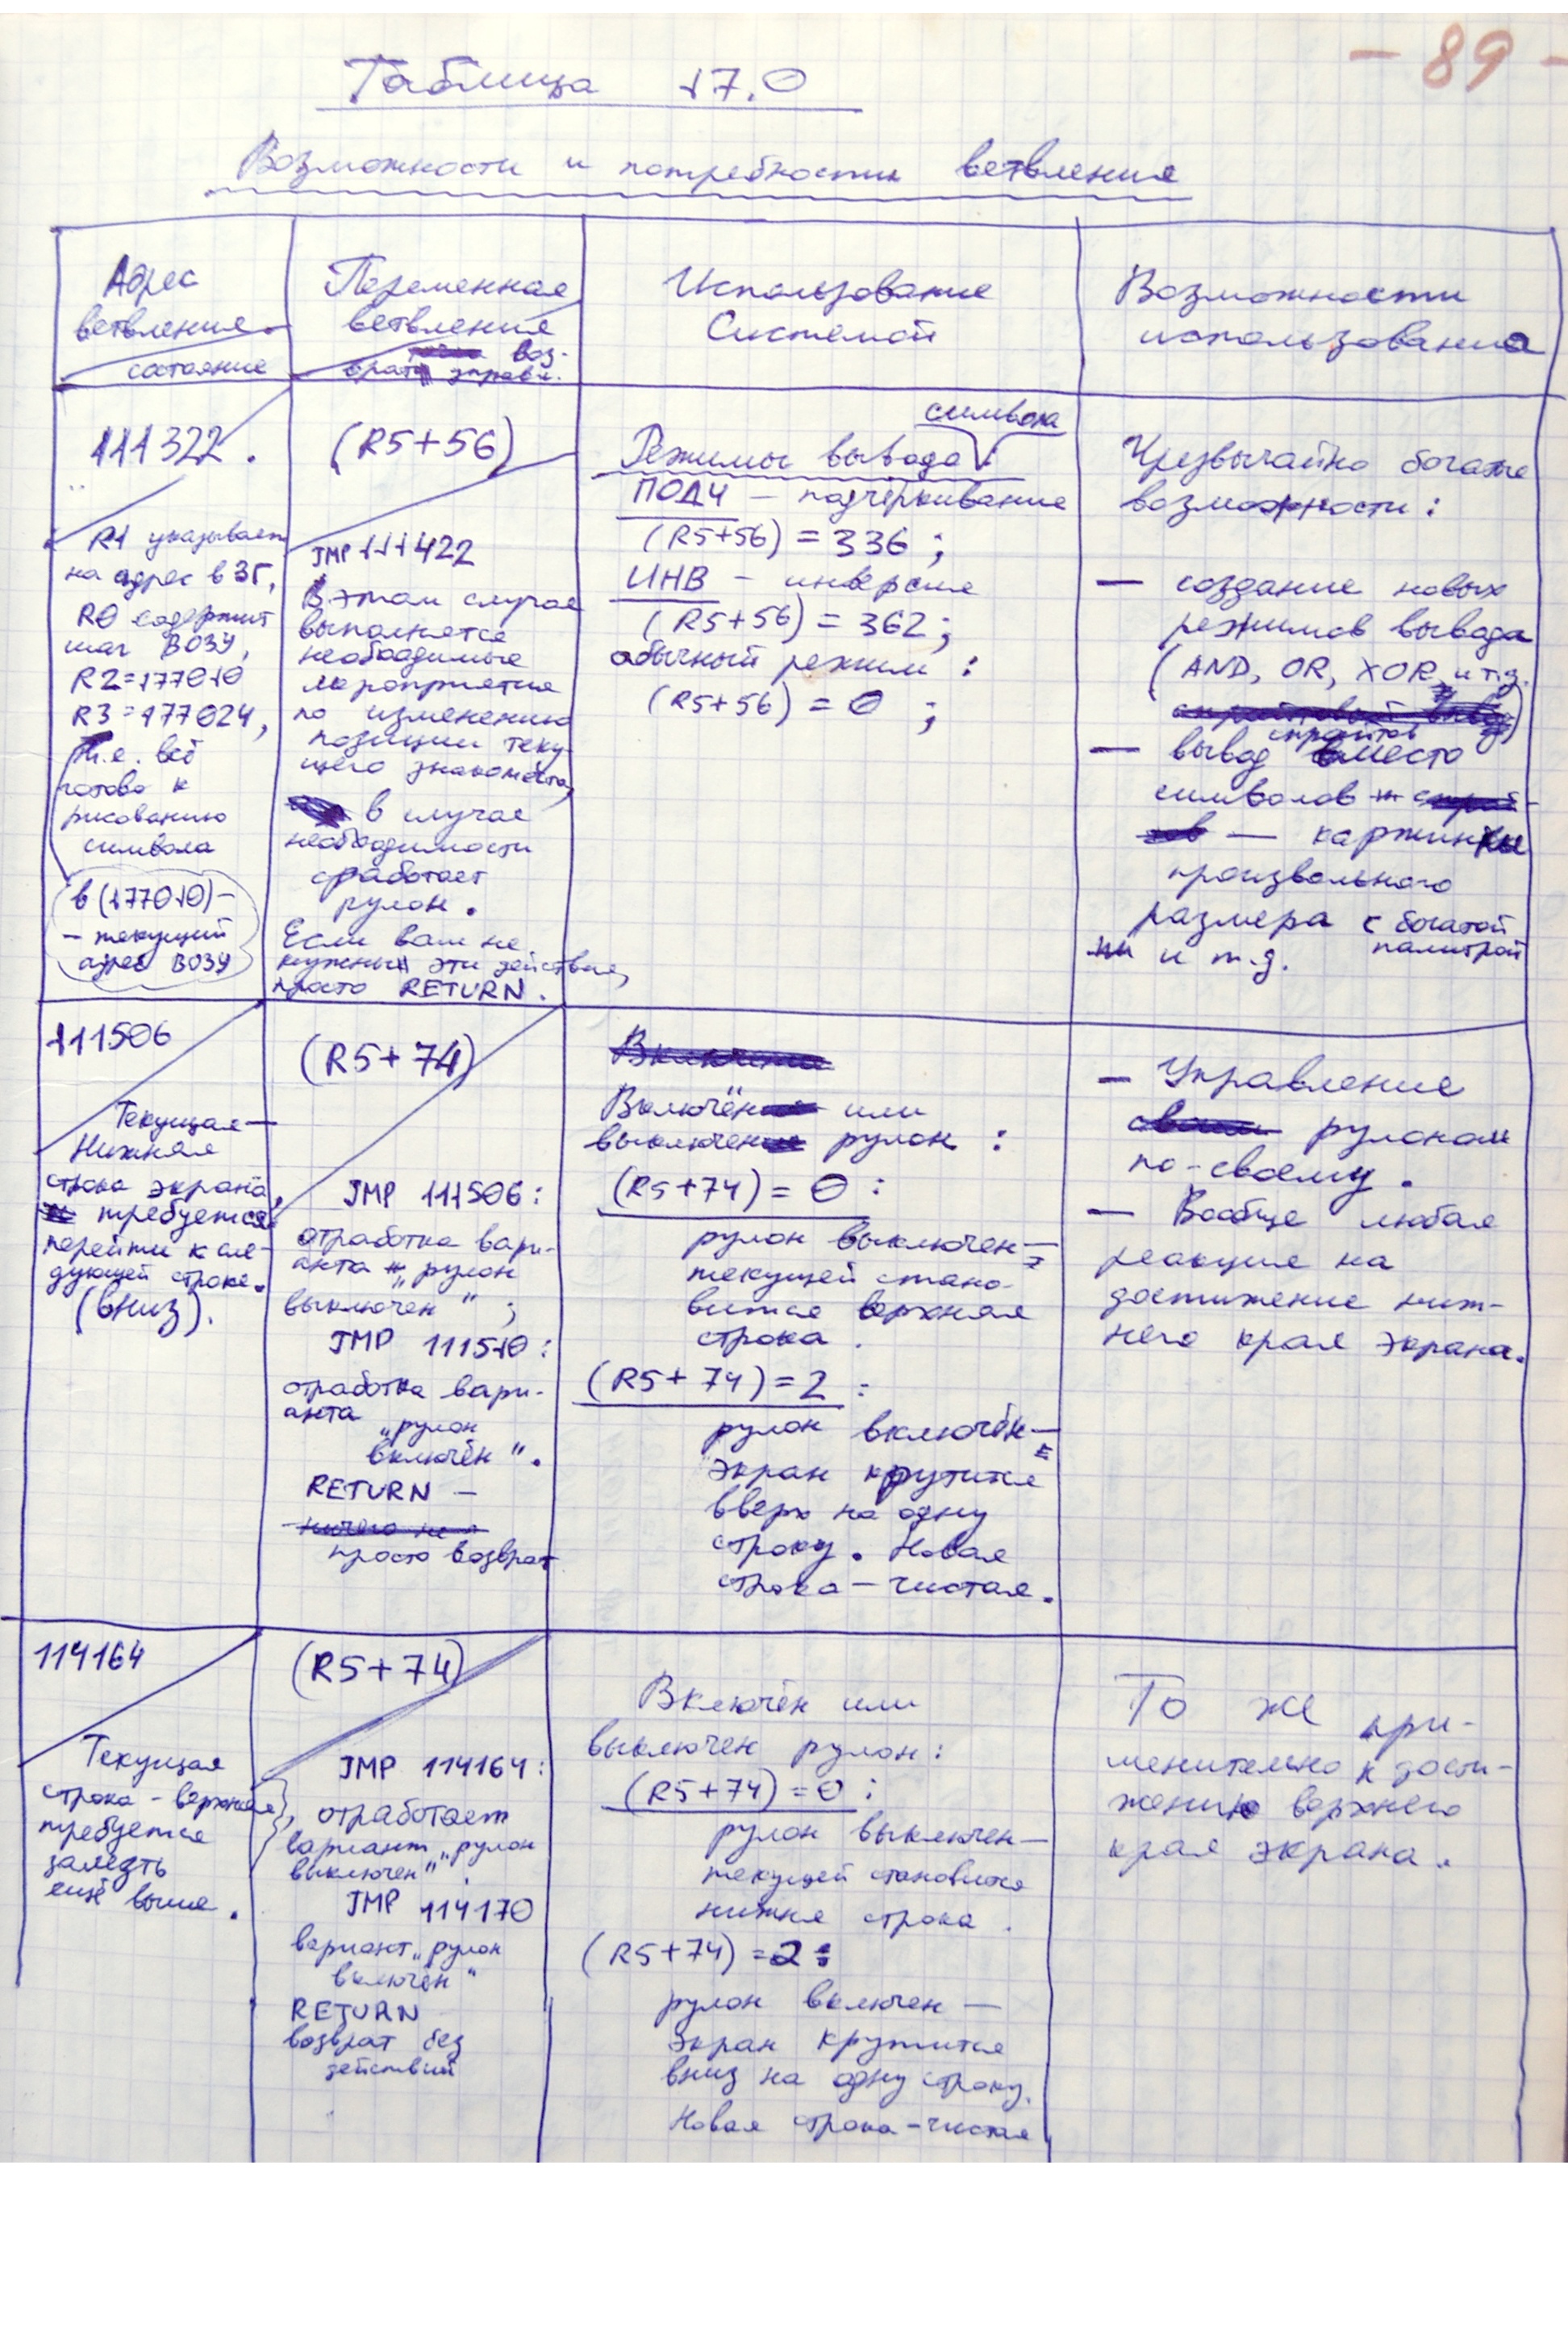 - 89 -
Таблица 17.0
Возможности и потребности ветвления
Адрес
ветвления
состояние
Переменная
ветвления
воз-
врат управл.
Использование
Системой
Возможности
использования
111322.
R1 указывает
на адрес в ЗГ,
R0 содержит
шаг ВОЗУ,
R2=177010
R3=177024,
т.е. всё
готово к
рисованию
символа
в (177010)-
- текущий
адрес ВОЗУ
(R5+56)
JMP 111422
В этом случае
выполняется
необходимые
мероприятия
по изменению
позиции теку-
щего знакоместа,
в случае
необходимости
сработает
рулон.
Если вам не
нужны эти действия,
просто RETURN.
символа
Режимы вывода :
ПОДЧ - подчёркивание
(R5+56) = 336 ;
ИНВ - инверсия
(R5+56) = 362;
обычный режим :
(R5+56) = 0 ;
Чрезвычайно богатые
возможности :
- создание новых
режимов вывода
(AND, OR, XOR, и т.д.)
спрайтов
- вывод вместо
символов
- картинки
произвольного
размера с богатой
палитрой
и т.д.
111506
Текущая -
Нижняя
строка экрана,
требуется
перейти к сле-
дующей строке.
(вниз).
(R5+74)
JMP 111506:
отработка вари-
анта „рулон
выключен" ;
JMP 111510:
отработка вари-
анта
„рулон
включён".
RETURN -
ничего не
просто возврат
Включён или
выключен рулон :
(R5+74) = 0 :
рулон выключен -
текущей стано-
вится верхняя
строка .
(R5+74)=2 :
рулон включён -
экран крутится
вверх на одну
строку. Новая
строка - чистая.
- Управление
рулоном
по-своему.
- Вообще любая
реакция на
достижение ниж-
него края экрана.
114164
Текущая
строка - верхняя,
требуется
залезть
ещё выше.
(R5+74)
JMP 114164:
отработает
вариант „рулон
выключен".
JMP 114170
вариант „рулон
включён"
RETURN
возврат без
действий
Включён или
выключен рулон:
(R5+74)=0:
рулон выключен -
текущей становится
нижня строка .
(R5+74)=2:
рулон включен -
экран крутится
вниз на одну строку.
Новая строка - чистая
То же при-
менительно к дости-
жению верхнего
края экрана.